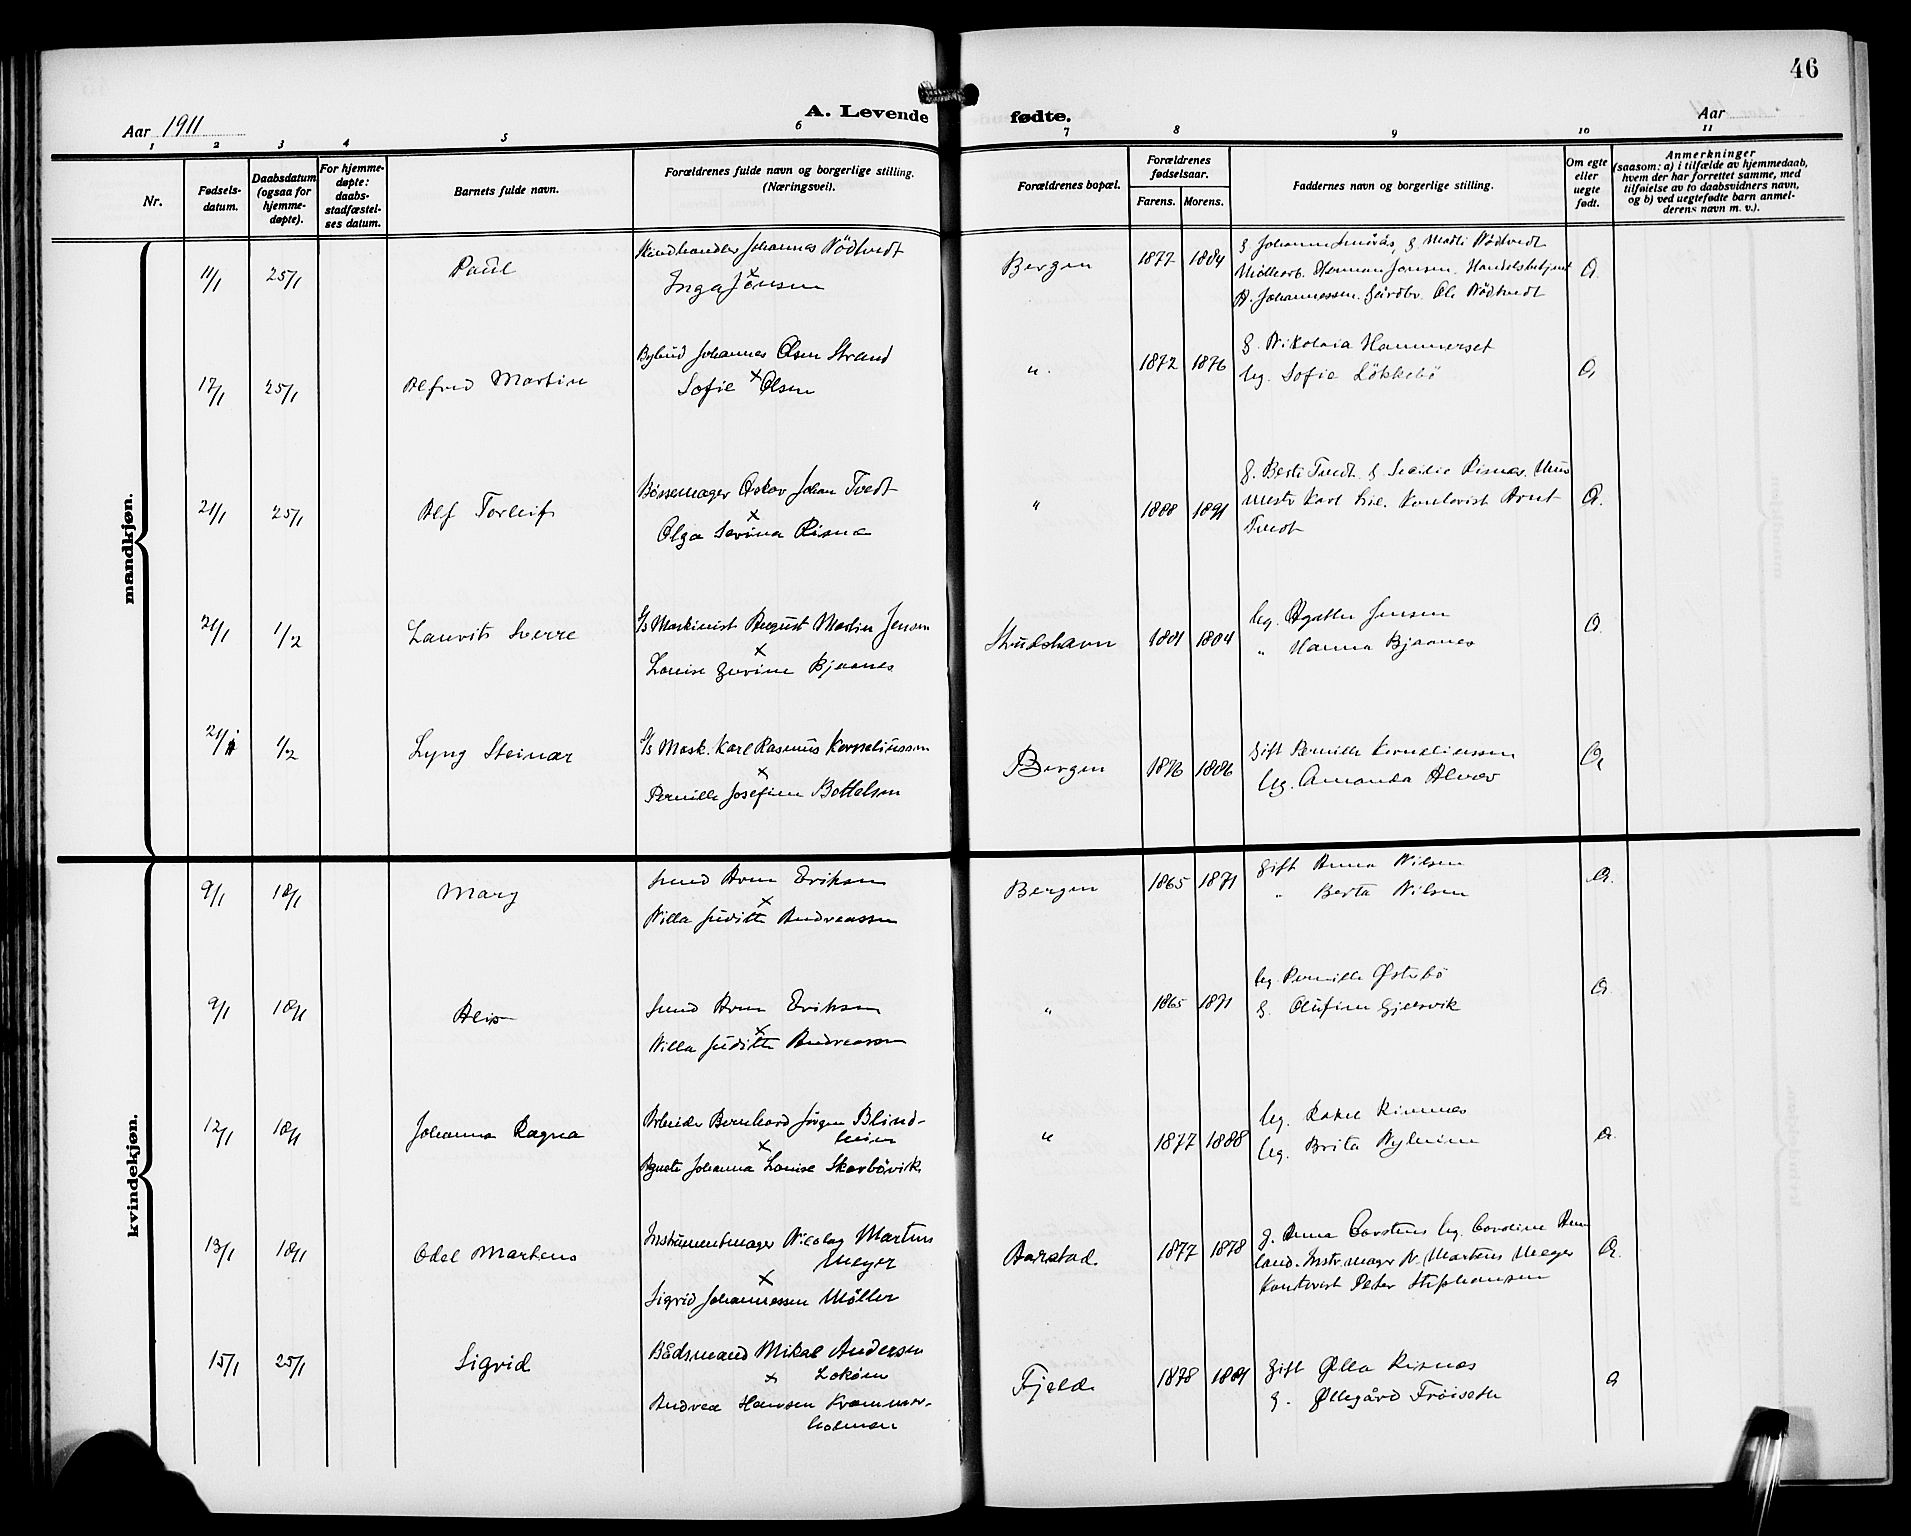 46
A. Levende fødte.
Aar 1911
Aar
1 2 3 4 5 6 7 8 9 10 11
Nr.
Fødsels-
datum.
Daabsdatum
(ogsaa for
hjemme-
døpte).
For hjemme-
døpte:
daabs-
stadfæstel-
ses datum.
Barnets fulde navn.
Forældrenes fulde navn og borgerlige stilling.
(Næringsvei).
Forældrenes bopæl.
Forældrenes
fødselsaar.
Farens. Morens.
Faddernes navn og borgerlige stilling.
Om egte
eller
uegte
født.
Anmerkninger
(saasom: a) i tilfælde av hjemmedaab,
hvem der har forrettet samme, med
tilføielse av to daabsvidners navn,
og b) ved uegtefødte barn anmel-
derens navn m. v.).
mandkjøn.
11/1 25/1 Paul
Johannes Nödtvedt
x
Inga Jönsen
Bergen 1877 1884
g. Johanne g. Marti Nödtvedt
Herman Jensen. Handelsbetjent
A. Johannessen. Gårdbr. Ole Nödtvedt
17/1 25/1 Alfred Martin
Bybud Johannes Olsen Strand
Sofie x Olsen
" 1872 1876
g. Nikolaia Hammerset
ug. Sofie Lökkebö
21/1 25/1 Alf Torleif
Bössemager Oskar Johan Tvedt
x
Olga Serina Risna
" 1888 1891
g. Berti Tvedt. g. Secilie Risnes.
mestr Karl Kontorist Arnt
Tvedt
21/1 1/2 Lauvits Sverre
Maskinist August Martin Jensen
x
Louise Bjaanes
Skudshavn 1881 1884
ug. Agathe Jensen
" Hanna Bjaanes
21/1 1/2 Lyng Steinar
Mask. Karl Rasmus Korneliussen
x
Pernille Josefine Bottelsen
Bergen 1876 1886
Gift Pernille Korneliussen
ug. Amanda Alver
kvindekjøn.
9/1 18/1 Mary
Arne Eriksen
x
Villa Judith Andreassen
Bergen 1865 1871
Gift Anna Nilsen
" Berta Nilsen
9/1 18/1 Alis
Arne Eriksen
x
Villa Judith Andreassen
" 1865 1871
ug. Pernille Østebö
g. Olufine Gjervik
12/1 18/1 Johanna Ragna
Arbeider Bernhard Jörgen Blind-
heim
x
Agnete Johanna Louise Skorbövik
" 1877 1888
ug. Rakel Rimnes
ug. Brita Nyheim
13/1 18/1 Odel Martens
Instrumentmager Nicolay Martens
Meyer
x
Sigrid Johannessen Möller
Aarstad. 1877 1878
g. Anna Carstens ug. Caroline
land. Instr. mager N. Martens Meyer
Kontorist Peter Stephansen
15/1 25/1 Sigrid
Bådsmand Mikal Andersen
x Loköen
Andrea Hansen Krammer-
holmen
Fjeld. 1878 1881
Gift Ølla Risnes
g. Øllegård Fröiseth